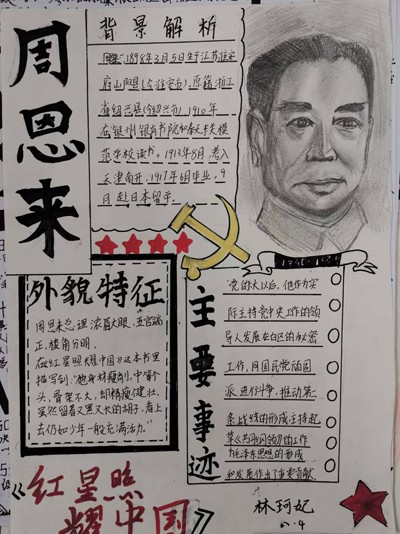 周恩来
背景解析
1898年3月5日生于江苏淮安
府山阳县(今淮安市),原籍浙江
省绍兴县(今绍兴市)。1910年
在银州银岗书院和奉天东关模
范学校读书。1913年8月考入
天津南开,1917年6月毕业。9
月赴日本留学。
外貌特征
周恩来总理浓眉大眼,五官端
正,棱角分明。
在《红星照耀中国》这本书里
描写到:"他身材瘦削,中等个
头,骨架不大,却精瘦健壮,
虽然留着又黑又长的胡子,看上
去仍如少年一般充满活力。"
主要事迹
党的六大以后,他作为实
际主持党中央工作的领
导人发展在白区的秘密
工作,同国民党顽固
派进行斗争,推动第二
条战线的形成主持起
毛泽东思想的形成
和发展作出了重要贡献
《红星照
耀中国》
林珂妃